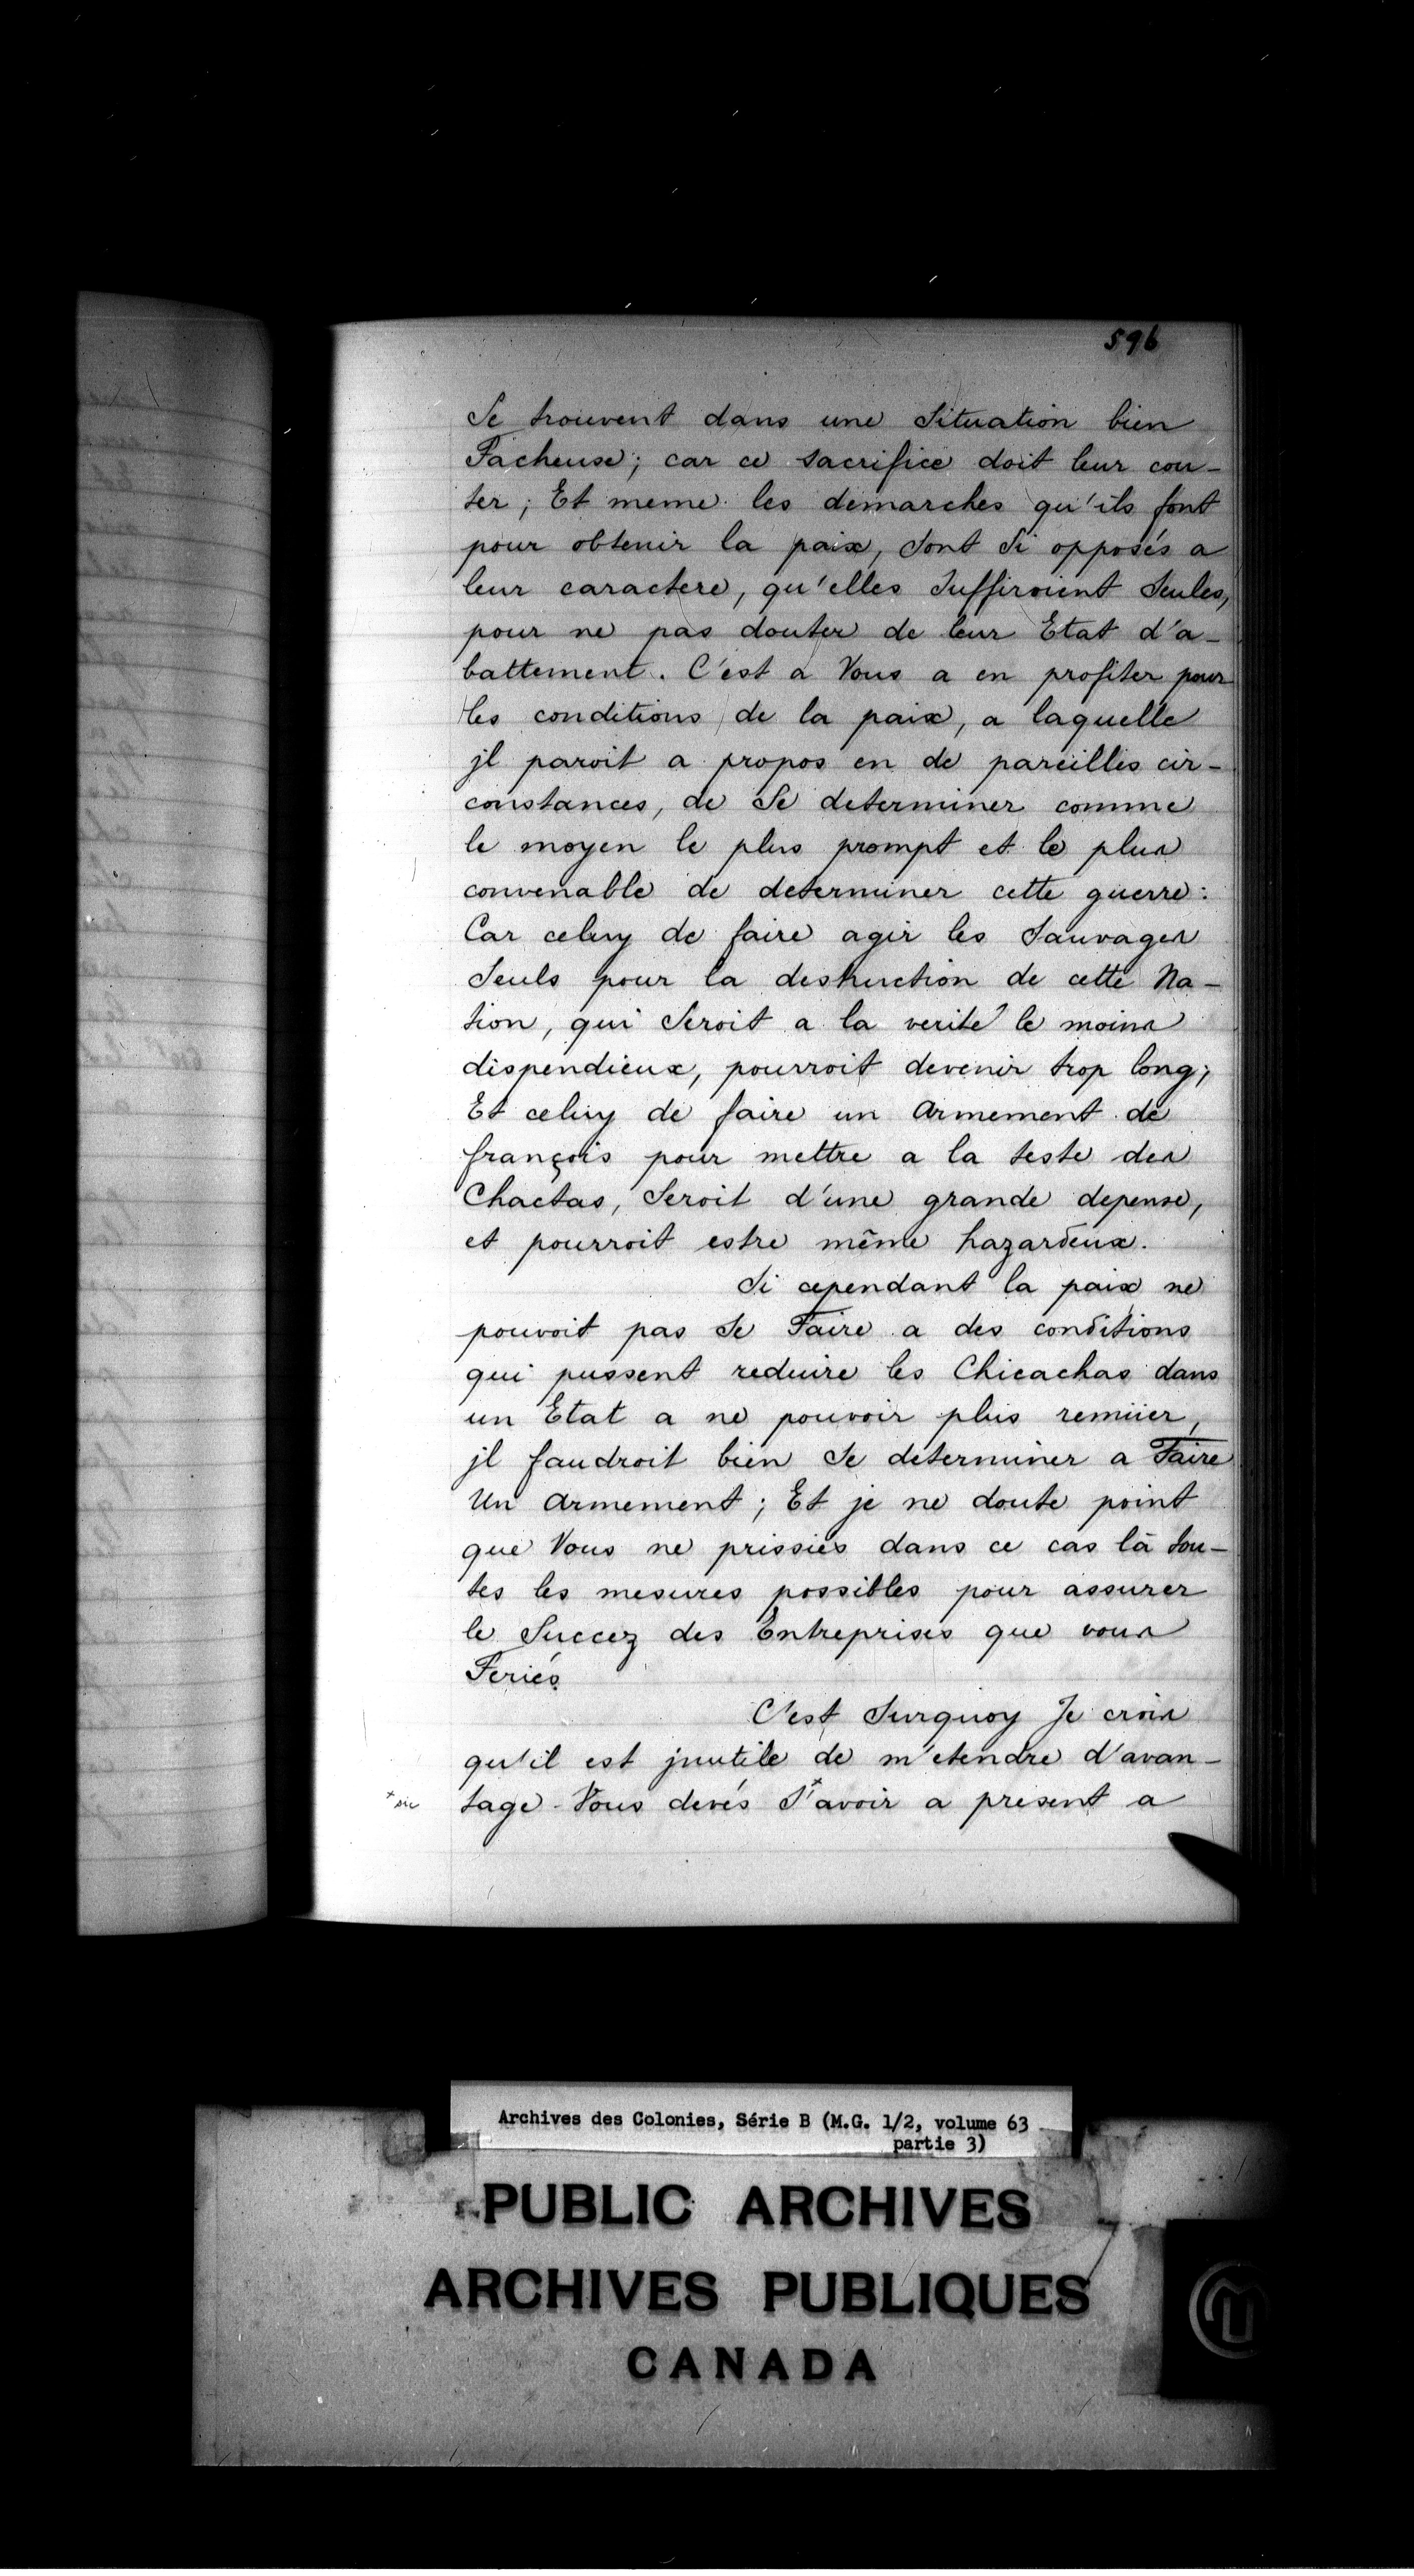 596
Se trouvent dans une Situation bien
Facheuse; car ce sacrifice doit leur cou-
ter; Et meme les demarches qu'ils font
pour obtenir la paix, Sont Si opposés a
leur caractere, qu'elles Suffiroient Seules,
pour ne pas douter de leur Etat d'a-
battement. C'est a Vous a en profiter pour
les conditions de la paix, a laquelle
jl paroit a propos en de pareilles cir-
constances, de Se determiner comme
le moyen le plus prompt et le plus
convenable de determiner cette guerre:
Car celuy de faire agir les Sauvages
Seuls pour la destruction de cette Na-
tion, qui Seroit a la verité le moins
dispendieux, pourroit devenir trop long;
Et celuy de faire un Armement de
françois pour mettre a la teste des
Chactas, Seroit d'une grande depense,
et pourroit estre même hazardeux.
Si cependant la paix ne
pouvoit pas Se Faire a des conditions
qui pussent reduire les Chicachas dans
un Etat a ne pouvoir plus remüer,
jl faudroit bien Se determiner a Faire
Un Armement; Et je ne doute point
que Vous ne prissiés dans ce cas là tou-
tes les mesures possibles pour assurer
le Succez des Entreprises que vous
Feriés
C'est Surquoy Je crois
qu'il est jnutile de m'etendre d'avan-
+ sic tage. Vous devés S'+avoir a present a
Archives des Colonies, Série B (M.G. 1/2, volume 63
partie 3)
PUBLIC ARCHIVES
ARCHIVES PUBLIQUES
CANADA